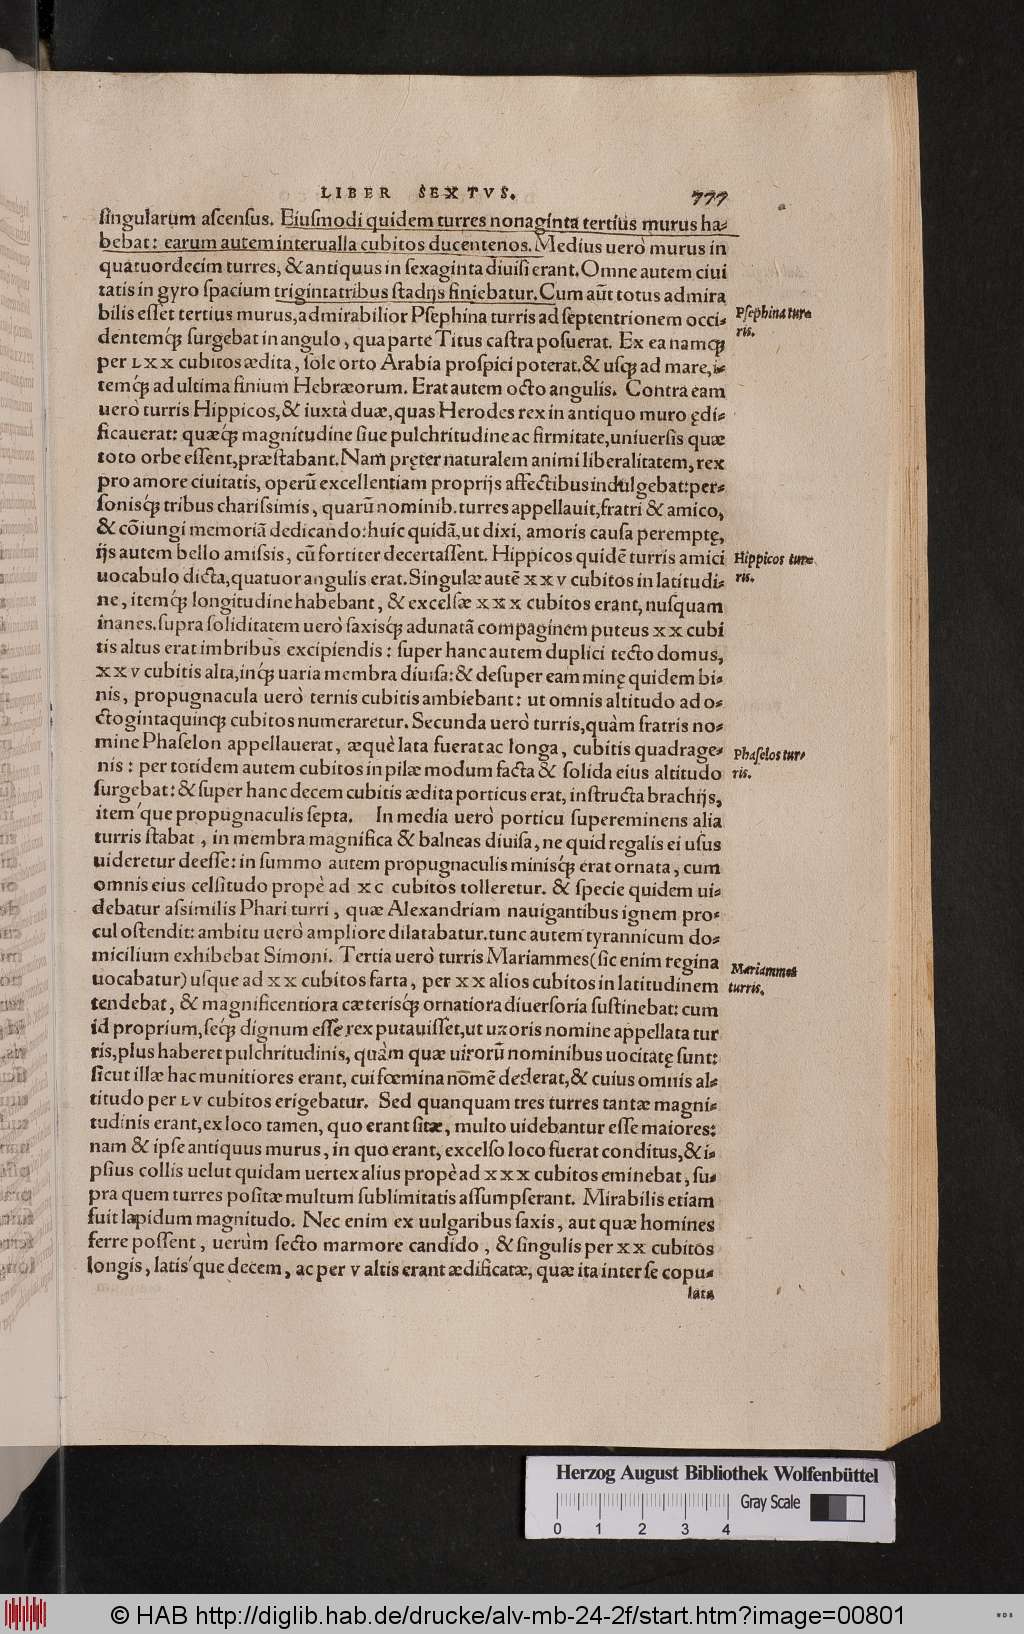 LIBER SEXTVS. 777
singularum ascensus. Eiusmodi quidem turres nonaginta tertius murus ha-
bebat: earum autem interualla cubitos ducentenos. Medius uerò murus in
quatuordecim turres, & antiquus in sexaginta diuisi erant. Omne autem ciui
tatis in gyro spacium trigintatribus stadijs finiebatur. Cum aũt totus admira
bilis esset tertius murus, admirabilior Psephina turris ad septentrionem occi-
Psephina tur-
ris.
dentemq́; surgebat in angulo, qua parte Titus castra posuerat. Ex ea namq;
per LXX cubitos ædita, sole orto Arabia prospici poterat. & usq; ad mare, i-
temq́; ad ultima finium Hebræorum. Erat autem octo angulis. Contra eam
uerò turris Hippicos, & iuxtà duæ, quas Herodes rex in antiquo muro ędi-
ficauerat: quæq́; magnitudine siue pulchritudine ac firmitate, uniuersis quæ
toto orbe essent, præstabant. Nam pręter naturalem animi liberalitatem, rex
pro amore ciuitatis, operũ excellentiam proprijs affectibus indulgebat: per-
sonisq́; tribus charissimis, quarũ nominib. turres appellauit, fratri & amico,
& cõiungi memoriã dedicando: huic quidã, ut dixi, amoris causa peremptę,
ijs autem bello amissis, cũ fortiter decertassent. Hippicos quidẽ turris amici
Hippicos tur-
ris.
uocabulo dicta, quatuor angulis erat. Singulæ autẽ XXV cubitos in latitudi-
ne, itemq́; longitudine habebant, & excelsæ XXX cubitos erant, nusquam
inanes. supra soliditatem uerò saxisq́; adunatã compaginem puteus XX cubi
tis altus erat imbribus excipiendis: super hanc autem duplici tecto domus,
XXV cubitis alta, inq́; uaria membra diuisa: & desuper eam minę quidem bi-
nis, propugnacula uerò ternis cubitis ambiebant: ut omnis altitudo ad o-
ctogintaquinq; cubitos numeraretur. Secunda uerò turris, quàm fratris no-
mine Phaselon appellauerat, æquè lata fuerat ac longa, cubitis quadrage-
Phaselos tur-
ris.
nis: per totidem autem cubitos in pilæ modum facta & solida eius altitudo
surgebat: & super hanc decem cubitis ædita porticus erat, instructa brachijs,
item'que propugnaculis septa. In media uerò porticu supereminens alia
turris stabat, in membra magnifica & balneas diuisa, ne quid regalis ei usus
uideretur deesse: in summo autem propugnaculis minisq́; erat ornata, cum
omnis eius celsitudo propè ad XC cubitos tolleretur. & specie quidem ui-
debatur assimilis Phari turri, quæ Alexandriam nauigantibus ignem pro-
cul ostendit: ambitu uerò ampliore dilatabatur. tunc autem tyrannicum do-
micilium exhibebat Simoni. Tertia uerò turris Mariammes (sic enim regina
Mariammes
turris.
uocabatur) usque ad XX cubitos farta, per XX alios cubitos in latitudinem
tendebat, & magnificentiora cæterisq́; ornatiora diuersoria sustinebat: cum
id proprium, seq́; dignum esse rex putauisset, ut uxoris nomine appellata tur
ris, plus haberet pulchritudinis, quàm quæ uirorũ nominibus uocitatę sunt:
sicut illæ hac munitiores erant, cui fœmina nomẽ dederat, & cuius omnis al-
titudo per LV cubitos erigebatur. Sed quanquam tres turres tantæ magni-
tudinis erant, ex loco tamen, quo erant sitæ, multo uidebantur esse maiores:
nam & ipse antiquus murus, in quo erant, excelso loco fuerat conditus, & i-
psius collis uelut quidam uertex alius propè ad XXX cubitos eminebat, su-
pra quem turres positæ multum sublimitatis assumpserant. Mirabilis etiam
fuit lapidum magnitudo. Nec enim ex uulgaribus saxis, aut quæ homines
ferre possent, uerùm secto marmore candido, & singulis per XX cubitos
longis, latis'que decem, ac per V altis erant ædificatæ, quæ ita inter se copu-
latæ
Herzog August Bibliothek Wolfenbüttel
Gray Scale
0 1 2 3 4
© HAB http://diglib.hab.de/drucke/alv-mb-24-2f/start.htm?image=00801